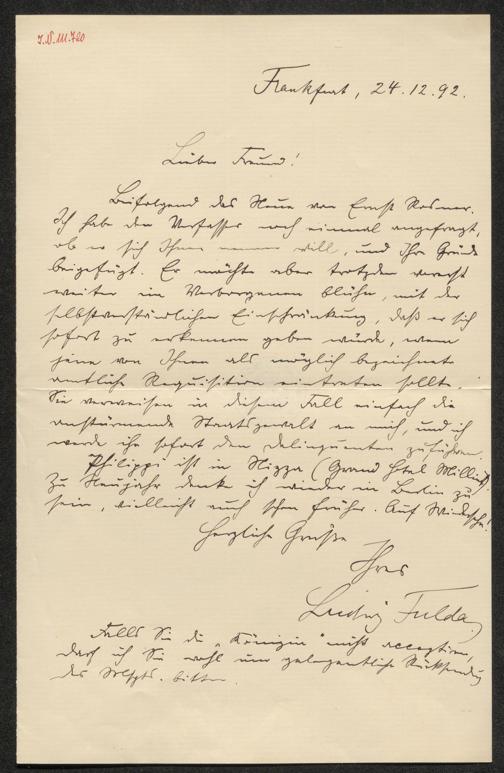 I.N. 111.720
Frankfurt, 24.12.92.
Lieber Freund!
Beifolgend das Neue von Ernst Rosmer.
Ich habe den Verfasser noch einmal angefragt,
ob er sich Ihnen nennen will, und Ihre Gründe
beigefügt. Er möchte aber trotzdem vorerst
weiter im Verborgenen blühn, mit der
selbstverständlichen Einschränkung, daß er sich
sofort zu erkennen geben würde, wenn
jene von Ihnen als möglich bezeichnete
amtliche Requisition eintreten sollte.
Sie verweisen in diesem Fall einfach die
anstürmende Staatsgewalt an mich, und ich
werde ihr sofort den Delinquenten zuführen.
Philippi ist in Nizza (Grand Hôtel Milliet).
Zu Neujahr denke ich wieder in Berlin zu
sein, vielleicht auch schon früher. Auf Wiedersehn!
Herzliche Grüße
Ihres
Ludwig Fulda.
Falls Sie die „Königin“ nicht acceptiren,
darf ich Sie wohl um gelegentliche Rücksendung
des Mscpts. bitten.